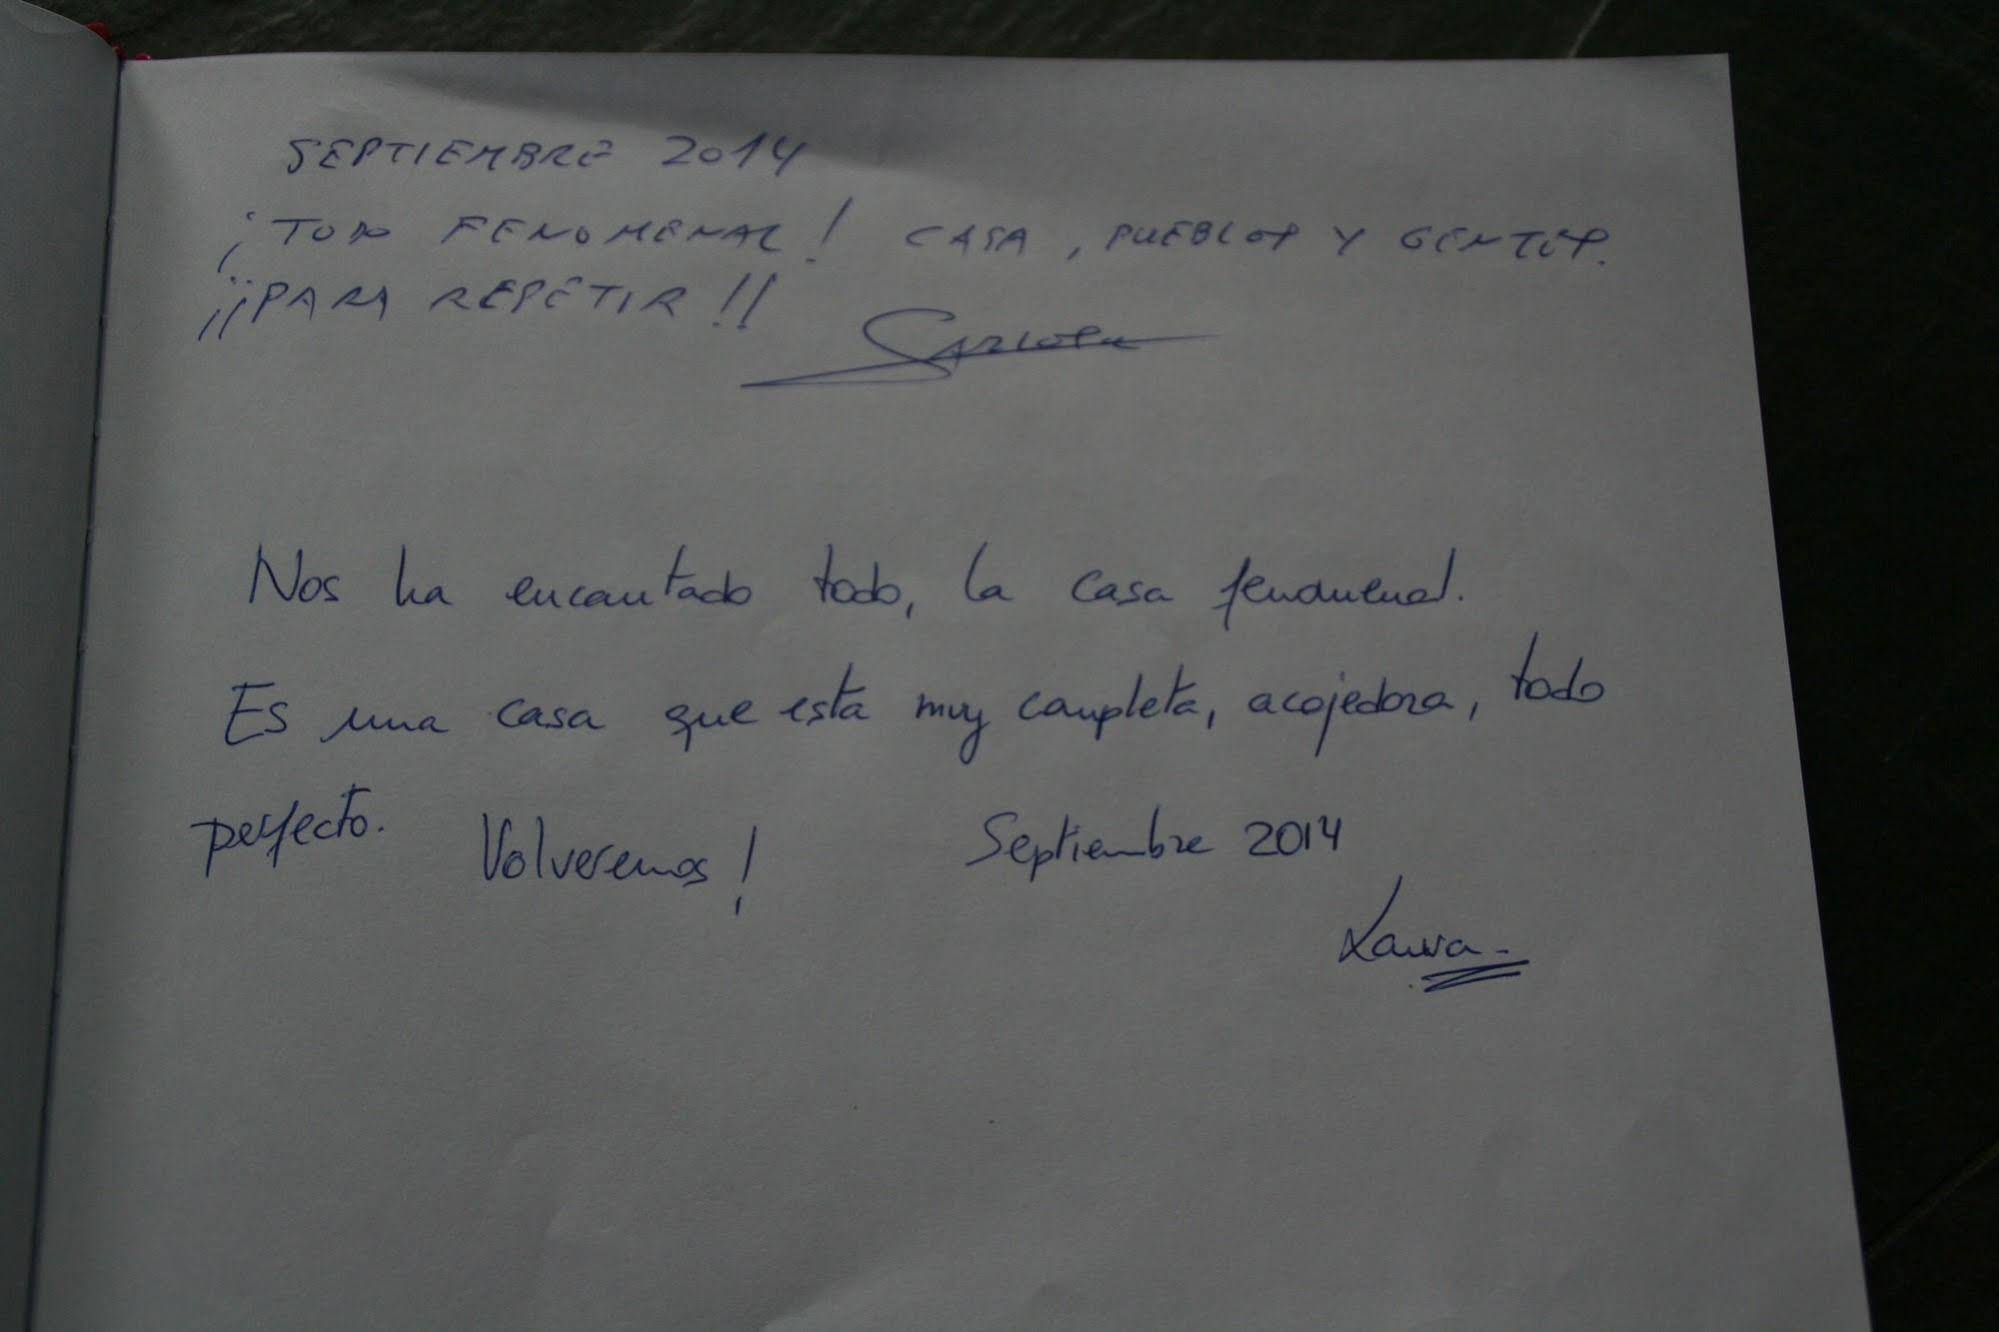 SEPTIEMBRE 2014
¡TODO FENOMENAL! CASA, PUEBLOS Y GENTES.
¡¡PARA REPETIR!!
Nos ha encantado todo, la casa fenomenal.
Es una casa que esta muy completa, acojedora, todo
perfecto. Volveremos! Septiembre 2014
Laura.-